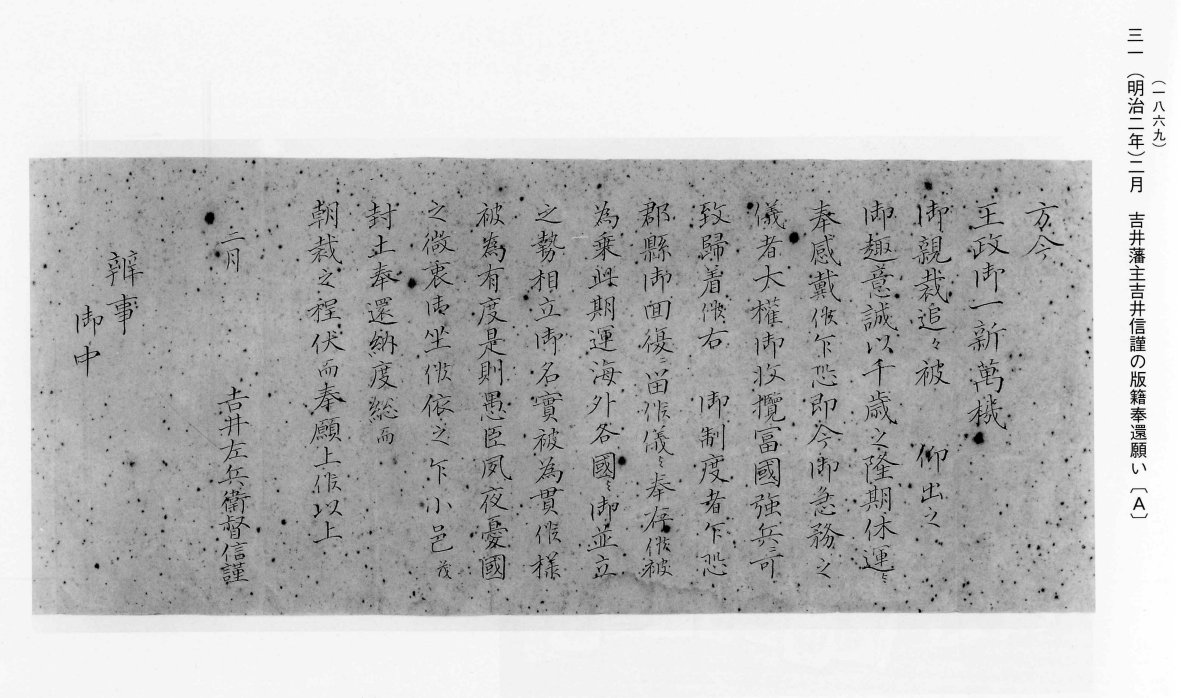 (一八六九)
三一 (明治二年)二月 吉井藩主吉井信謹の版籍奉還願い〔A〕
方今
王政御一新萬機
御親裁追々被 仰出之
御趣意誠以千歳之隆期休運ニ
奉感戴候乍恐即今御急務之
儀者大權御收攬冨國強兵ニ可
致歸着候右 御制度者乍恐
郡縣御回復ニ留候儀ミ奉存候被
為乗此期運海外各國ミ御並立
之勢相立御名實被為貫候様
被為有度是則愚臣夙夜憂國
之微衷御坐候依之乍小邑茂
封土奉還納度総而
朝裁之程伏而奉願上候以上
二月
吉井左兵衛督信謹
辨事
御中